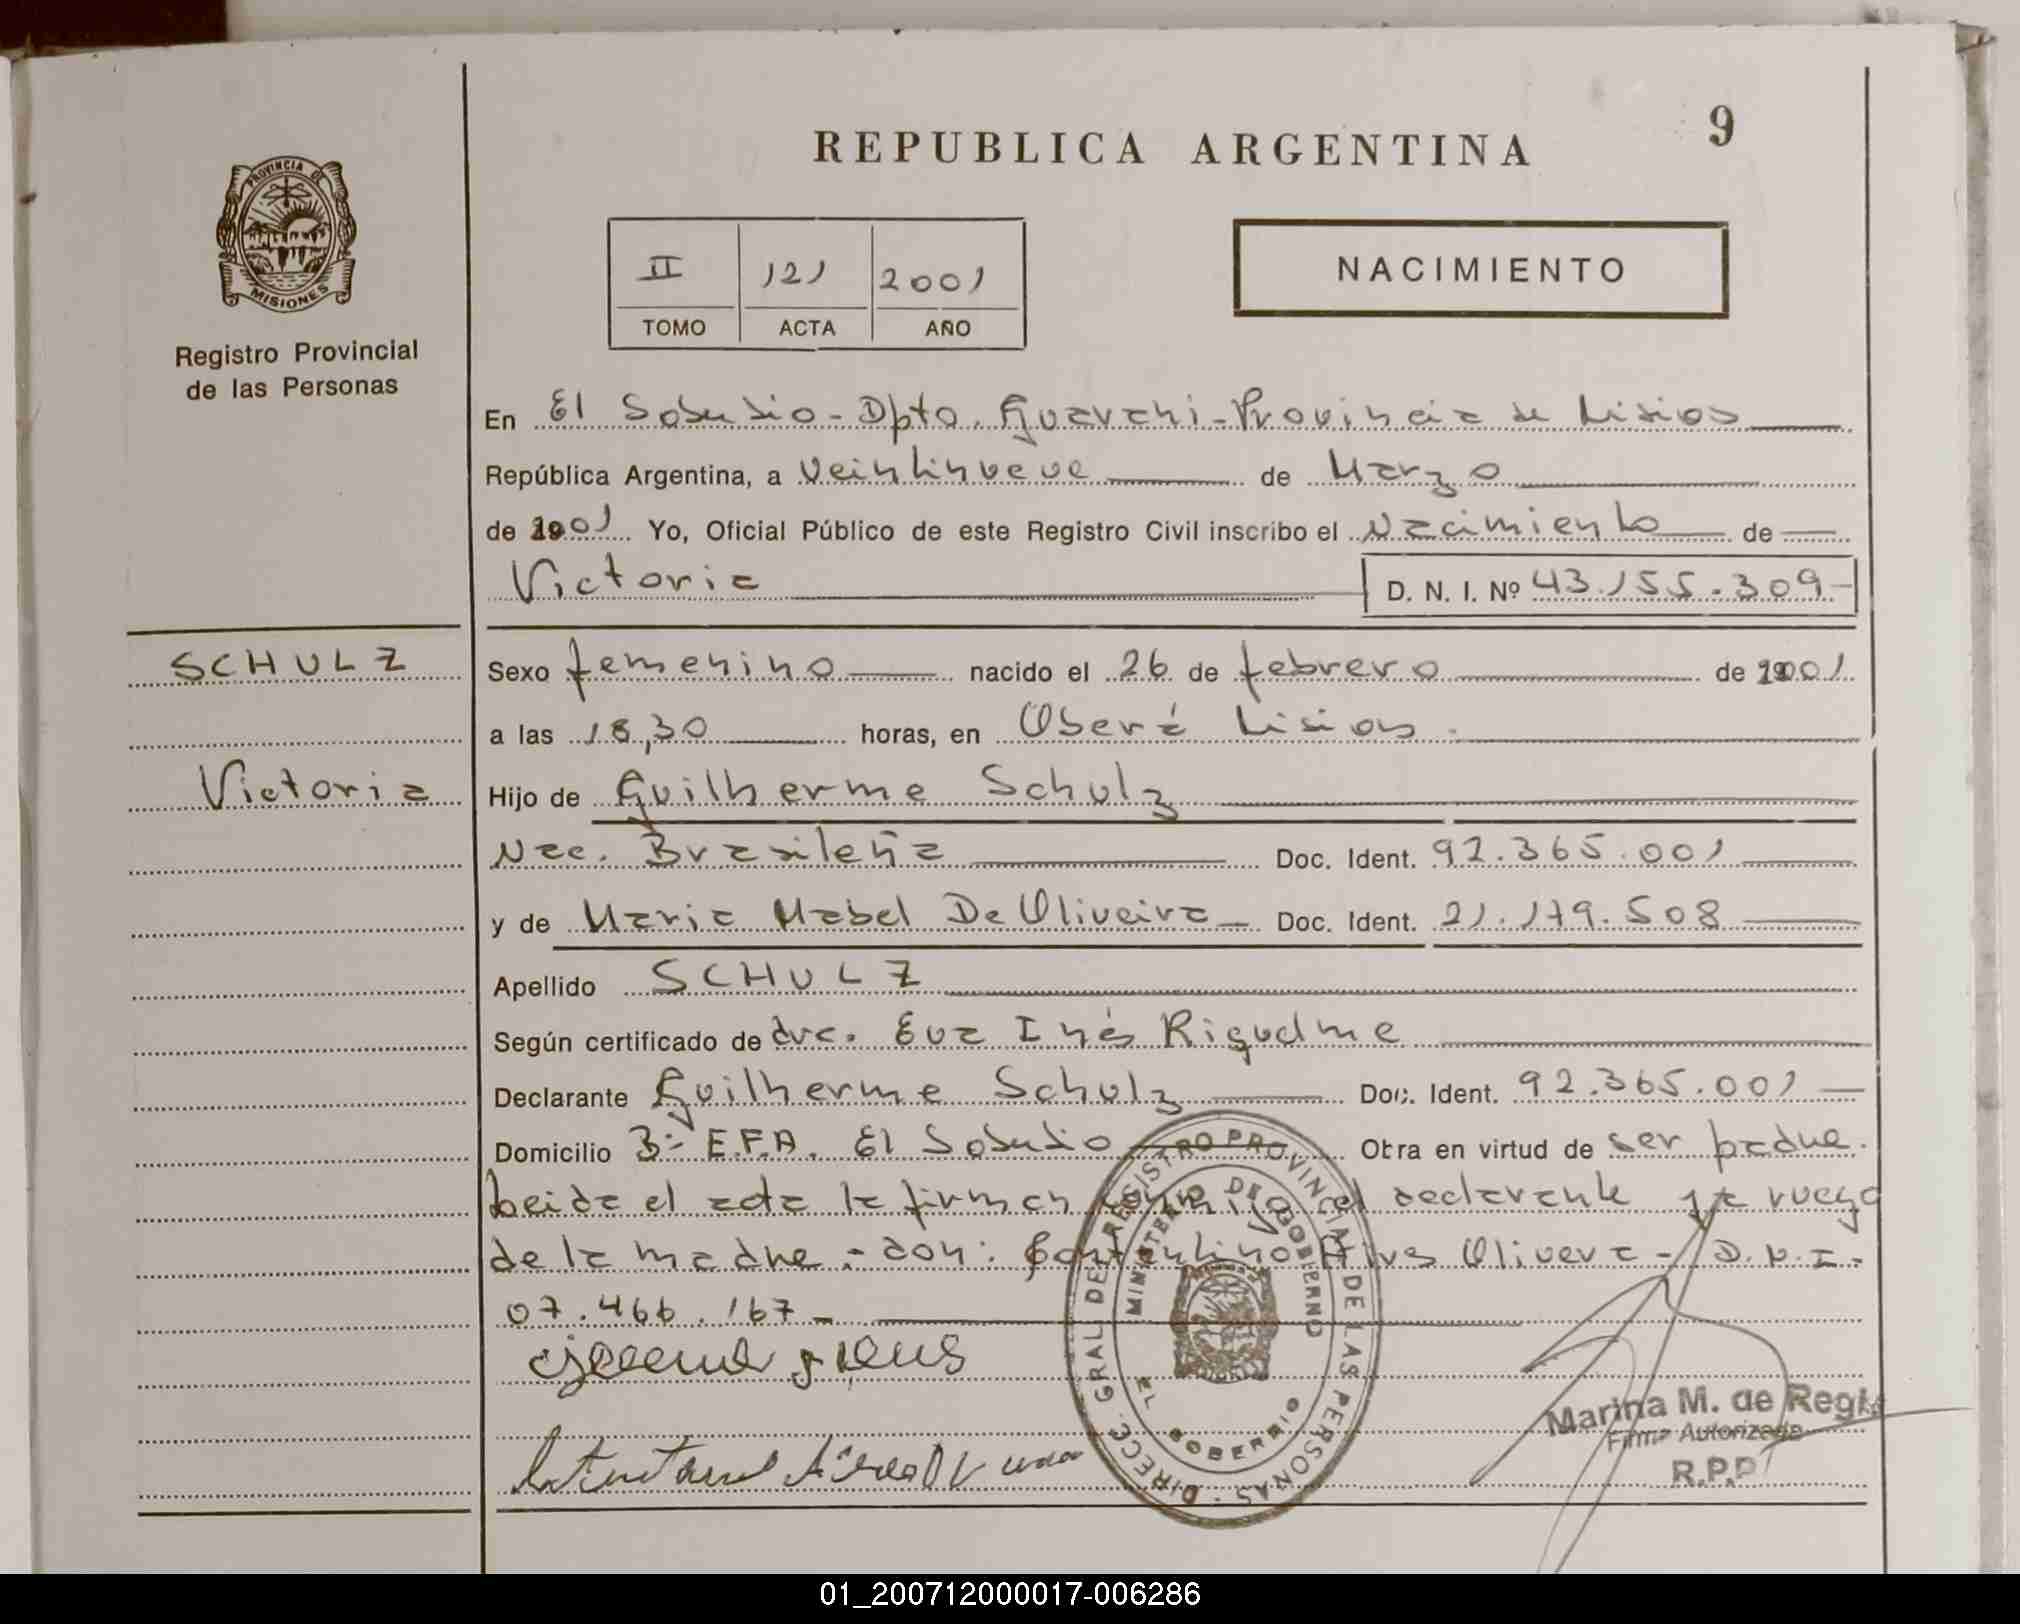 9
REPUBLICA ARGENTINA
PROVINCIA DE
MISIONES
Registro Provincial
de las Personas
II 121 2001
TOMO ACTA AÑO
NACIMIENTO
En El Soberbio - Dpto. Guarani - Provincia de Misiones
República Argentina, a veintinueve de Marzo
de 2001 Yo, Oficial Público de este Registro Civil inscribo el Nacimiento de
Victoria D. N. I. Nº 43.155.309-
SCHULZ
Victoria
Sexo femenino nacido el 26 de febrero de 2001
a las 18,30 horas, en Oberá Misiones.
Hijo de Guilherme Schulz
Nac. Brasileña Doc. Ident. 92.365.001
y de Maria Mabel De Oliveira - Doc. Ident. 21.179.508
Apellido SCHULZ
Según certificado de dra. Eva Inés Riquelme
Declarante Guilherme Schulz Doc. Ident. 92.365.001
Domicilio E.F.A. El Soberbio Obra en virtud de ser padre.
Leida el acta la firman conmigo el declarante y a ruego
de la madre - don: Alves Olivera - D.N.I.
07.466.167-
DIRECC. GRAL. DEL REGISTRO PROVINCIAL DE LAS PERSONAS
MINISTERIO DE GOBIERNO
EL SOBERBIO
Marina M. de
Firma Autorizada
R.P.P
01_200712000017-006286